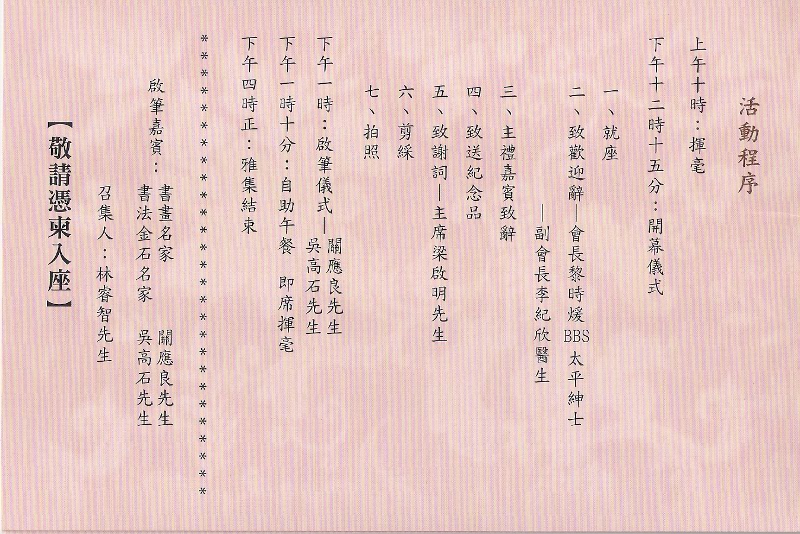 活動程序
上午十時：揮毫
下午十二時十五分：開幕儀式
一、就座
二、致歡迎辭—會長黎時煖BBS太平紳士
—副會長李紀欣醫生
三、主禮嘉賓致辭
四、致送紀念品
五、致謝詞—主席梁啟明先生
六、剪綵
七、拍照
下午一時：啟筆儀式—關應良先生
吳高石先生
下午一時十分：自助午餐 即席揮毫
下午四時正：雅集結束
************************
啟筆嘉賓：書畫名家 關應良先生
書法金石名家 吳高石先生
召集人：林睿智先生
【敬請憑柬入座】